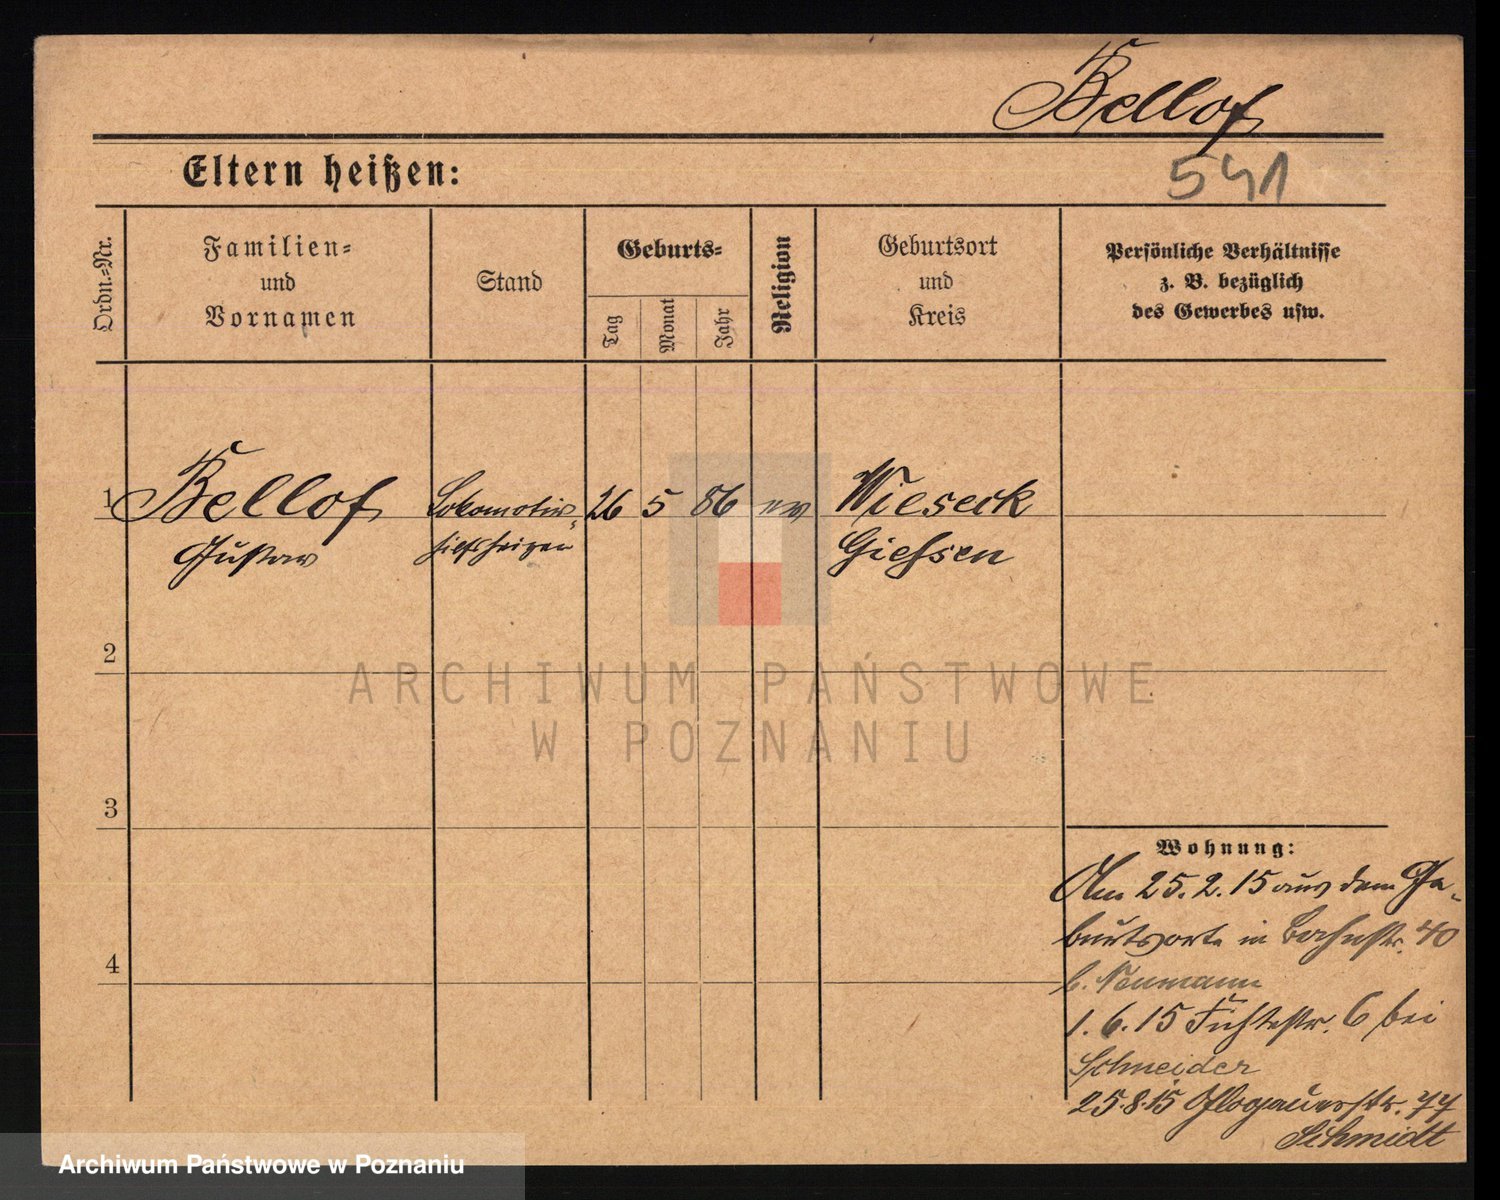 Bellof
541
Eltern heißen:
Ordn.-Nr.
Familien-
und
Vornamen
Stand
Geburts-
Tag
Monat
Jahr
Religion
Geburtsort
und
Kreis
Persönliche Verhältnisse
z. B. bezüglich
des Gewerbes usw.
1 Bellof Lokomotiv- 26 5 86 ev Wieseck
Gustav hilfsheizer Giessen
2
3
4
ARCHIWUM PAŃSTWOWE
W POZNANIU
Wohnung:
Am 25.2.15 aus dem Ge-
burtsorte in Bahnstr. 40
b. Neumann
1.6.15 Fichtestr. 6 bei
Schneider
25.8.15 Glogauerstr. 77
Schmidt
Archiwum Państwowe w Poznaniu